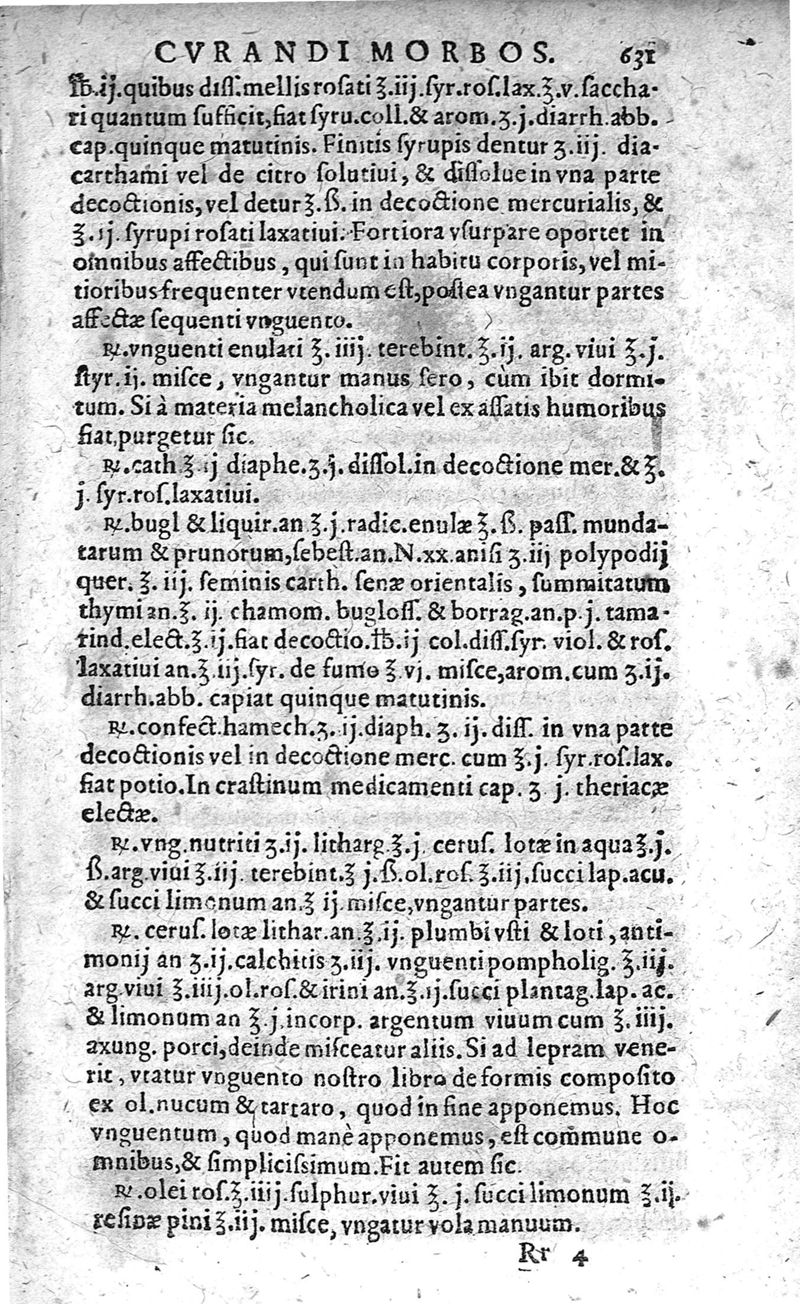 CVRANDI MORBOS. 631
℔.ij.quibus diſſ.mellis roſati ℥.iij.ſyr.roſ.lax.℥.v.ſaccha-
ri quantum ſufficit,fiat ſyru.coll.& arom.ʒ.j.diarrh.abb.
cap.quinque matutinis. Finitis ſyrupis dentur ʒ.iij. dia-
carthami vel de citro ſolutiui, & diſſolue in vna parte
decoctionis, vel detur ℥.ß. in decoctione mercurialis, &
℥.ij. ſyrupi roſati laxatiui. Fortiora vſurpare oportet in
omnibus affectibus, qui ſunt in habitu corporis, vel mi-
tioribus frequenter vtendum eſt,poſtea vngantur partes
affectæ ſequenti vnguento.
℞.vnguenti enulati ℥.iiij. terebint.℥.ij. arg.viui ℥.j.
ſtyr.ij. miſce, vngantur manus ſero, cùm ibit dormi-
tum. Si à materia melancholica vel ex aſſatis humoribus
fiat,purgetur ſic.
℞.cath ℥ ij diaphe.ʒ.j.diſſol.in decoctione mer.& ℥.
j. ſyr.roſ.laxatiui.
℞.bugl & liquir.an ℥.j.radic.enulæ ℥.ß. paſſ. munda-
tarum & prunorum,ſebeſt.an.N.xx.aniſi ʒ.iij polypodij
quer. ℥. iij. ſeminis carth. ſenæ orientalis, ſummitatum
thymi an.℥. ij. chamom. bugloſſ. & borrag.an.p.j. tama-
rind.elect.℥.ij.fiat decoctio.℔.ij col.diſſ.ſyr. viol. & roſ.
laxatiui an.℥.iij.ſyr. de fumo ℥.vj. miſce,arom.cum ʒ.ij.
diarrh.abb. capiat quinque matutinis.
℞.confect.hamech.ʒ.ij.diaph.ʒ.ij.diſſ. in vna parte
decoctionis vel in decoctione merc. cum ℥.j. ſyr.roſ.lax.
fiat potio.In craſtinum medicamenti cap. ʒ j. theriacæ
electæ.
℞.vng.nutriti ʒ.ij. litharg.℥.j. ceruſ. lotæ in aqua ℥.j.
ß.arg.viui ℥.iij. terebint.℥ j.ß.ol.roſ.℥.iij.ſucci lap.acu.
& ſucci limonum an.℥ ij miſce,vngantur partes.
℞. ceruſ. lotæ lithar.an.℥.ij. plumbi vſti & loti, anti-
monij an ʒ.ij.calchitis ʒ.iij. vnguenti pompholig. ℥.iij.
arg.viui ℥.iiij.ol.roſ.& irini an.℥.ij.ſucci plantag.lap. ac.
& limonum an ℥.j.incorp. argentum viuum cum ℥.iiij.
axung. porci,deinde miſceatur aliis. Si ad lepram vene-
rit, vtatur vnguento noſtro libro de formis compoſito
ex ol.nucum & tartaro, quod in fine apponemus. Hoc
vnguentum, quod manè apponemus, eſt commune o-
mnibus,& ſimpliciſſimum.Fit autem ſic.
℞.olei roſ.℥.iiij.ſulphur.viui ℥. j. ſucci limonum ℥.ij.
reſinæ pini ℥.iij. miſce, vngatur vola manuum.
Rr 4